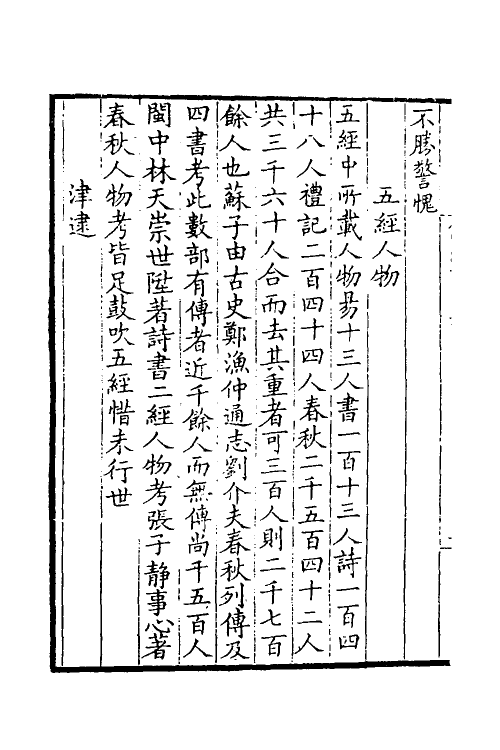 不勝警愧
五經人物
五經中所載人物易十三人書一百十三人詩一百四
十八人禮記二百四十四人春秋二千五百四十二人
共三千六十人合而去其重者可三百人則二千七百
餘人也蘇子由古史鄭漁仲通志劉介夫春秋列傳及
四書考此數部有傳者近千餘人而無傳尚千五百人
閩中林天崇世陞著詩書二經人物考張子静事心著
春秋人物考皆足鼓吹五經惜未行世
津逮